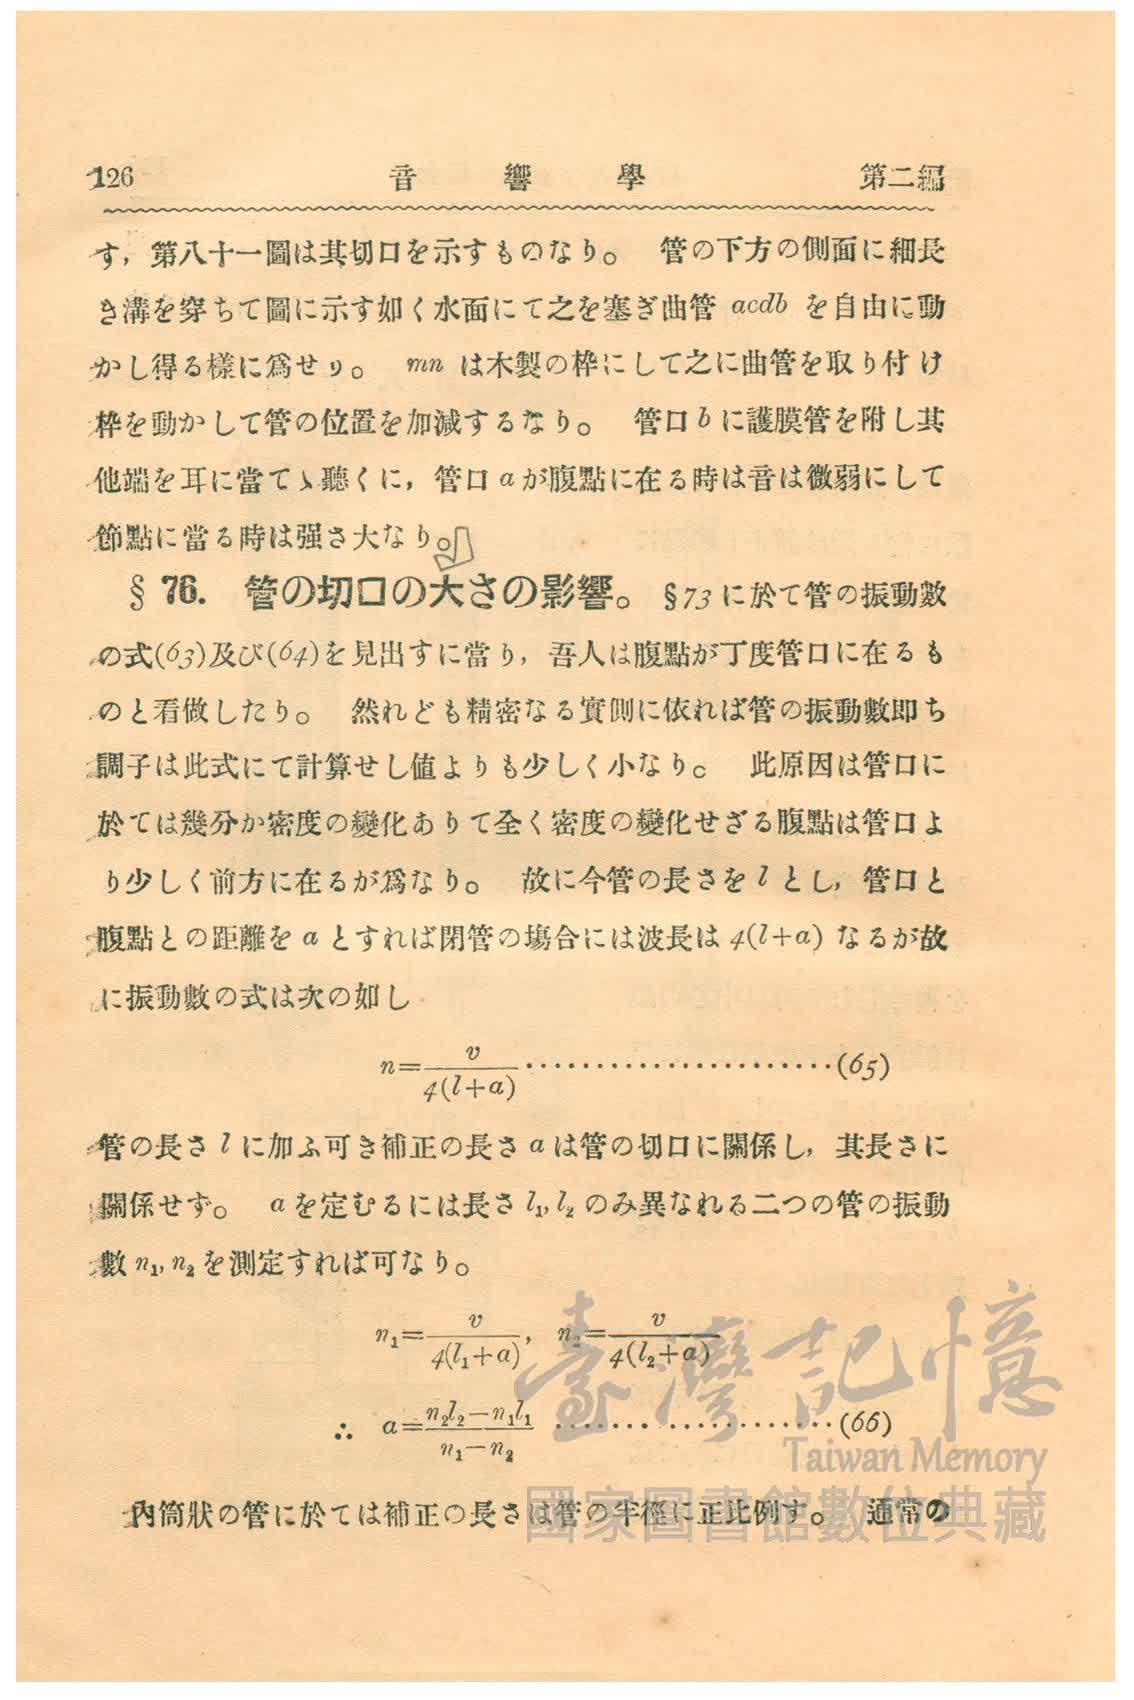 126 音響學 第二編
す，第八十一圖は其切口を示すものなり。 管の下方の側面に細長
き溝を穿ちて圖に示す如く水面にて之を塞ぎ曲管 acdb を自由に動
かし得る樣に爲せり。 mn は木製の枠にして之に曲管を取り付け
枠を動かして管の位置を加減するなり。 管口 b に護膜管を附し其
他端を耳に當てゝ聽くに，管口 a が腹點に在る時は音は微弱にして
節點に當る時は强さ大なり。
§ 76. 管の切口の大さの影響。 §73 に於て管の振動數
の式(63)及び(64)を見出すに當り，吾人は腹點が丁度管口に在るも
のと看做したり。 然れども精密なる實測に依れば管の振動數卽ち
調子は此式にて計算せし値よりも少しく小なり。 此原因は管口に
於ては幾分か密度の變化ありて全く密度の變化せざる腹點は管口よ
り少しく前方に在るが爲なり。 故に今管の長さを l とし，管口と
腹點との距離を a とすれば閉管の塲合には波長は 4(l+a) なるが故
に振動數の式は次の如し
n=v/4(l+a)······················(65)
管の長さ l に加ふ可き補正の長さ a は管の切口に關係し，其長さに
關係せず。 a を定むるには長さ l₁, l₂ のみ異なれる二つの管の振動
數 n₁, n₂ を測定すれば可なり。
n₁=v/4(l₁+a)， n₂=v/4(l₂+a)
∴ a=n₂l₂−n₁l₁/n₁−n₂ ····················(66)
內筒狀の管に於ては補正の長さは管の半徑に正比例す。 通常の
臺灣記憶
Taiwan Memory
國家圖書館數位典藏